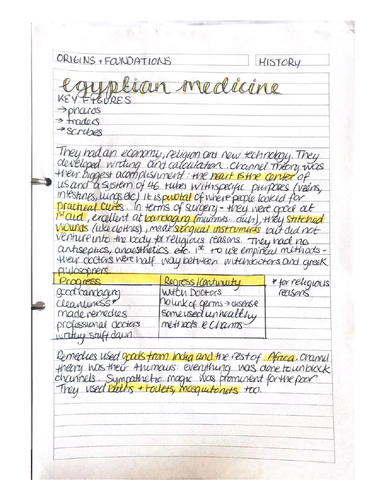 ORIGINS + FOUNDATIONS HISTORY
egyptian medicine
KEY FIGURES
→ pharos
→ traders
→ scribes
They had an economy, religion and new technology. They
developed writing and calculation. Channel theory was
their biggest acomplishment: the heart is the center of
us and a system of 46 tubes with specific purposes (veins,
intestines, lungs etc). It is pivotal of where people looked for
practical cures. In terms of surgery - they were good at
1st aid, excellent at bandaging (mummies duh), they stitched
wounds (like clothes), neat surgical instruments but did not
venture into the body for religious reasons. They had no
antiseptics, anaesthetics etc. 1st to use empirical methods -
their doctors were half way between witchdoctors and greek
philosophers.
Progress Regress/Continuity * for religious
good bandaging Witch Doctors reasons
cleanliness* no link of germs → disease
made remedies some used unhealthy
professional doctors methods & Charms
writing stuff down
Remedies used goods from India and the rest of Africa. Channel
theory was their 4 humours: everything was done to unblock
channels. Sympathetic magic was prominent for the poor
They used baths + toilets, mosquito nets too.